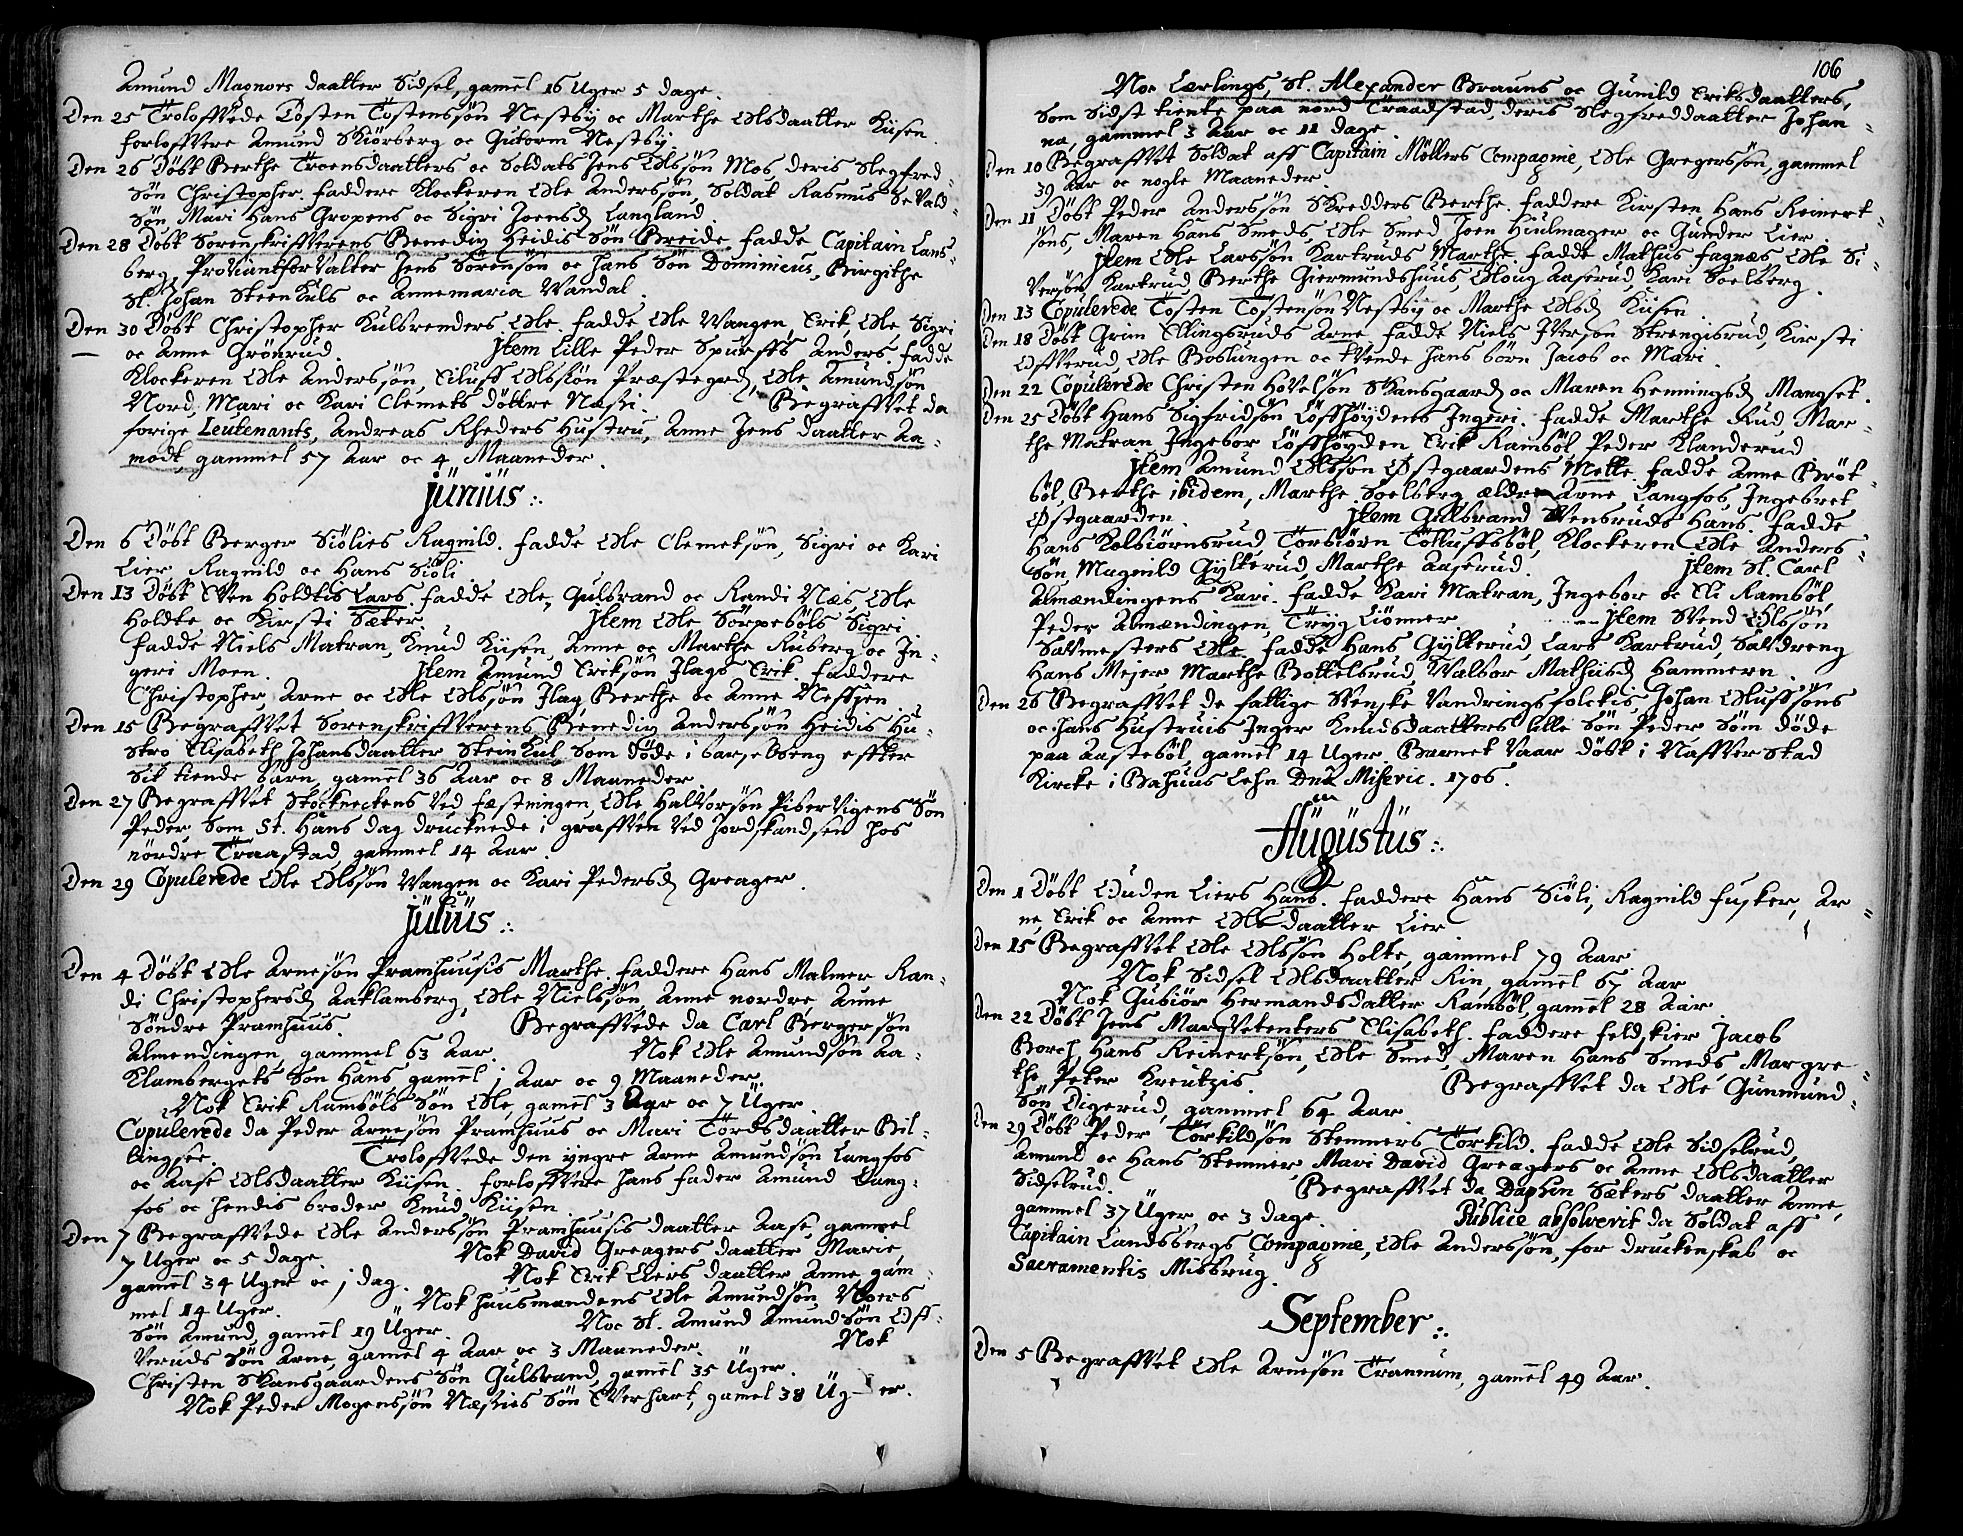 Amund Magnors daatter Sidsel, gamel 16 Uger 5 dage.
Den 25 Troloffvede Tosten Tostensøn Nestby oc Marthe Olsdaatter Kiisen.
forloffvere Amund Skiørberg oc Gutorm Nestby.
Den 26 Døbt Berthe Troensdaatters oc Soldats Jens Olssøn Mos, deris Slegfred-
Søn Christopher. faddere Klockeren Ole Anderssøn, Soldat Rasmus Sevald-
Søn Mari Hans Gropens oc Sigri Joensd Langland.
Den 28 Døbt Sorenskriffverens Benedix Heidis Søn Breide. fadde Capitain Lans-
berg, Proviantforvalter Jens Sørensøn oc Hans Søn Dominicus, Birgithe
Sl. Johan Steenkuls oc Annemaria Wandal.
Den 30 Døbt Christopher Kulbrenders Ole. fadde Ole Wangen, Erik, Ole Sigri
oc Anne Grønrud. Jtem Lille Peder Spurffs Anders. fadde
Klockeren Ole Anderssøn, Eiluff Olssøn Præstegrd, Ole Amundsøn
Nord, Mari oc Kari Clemets døttre Næbbi. Begraffvet da
forige Leutenants, Andreas Rheders Hustru, Anne Jens daatter Aa-
modt, gammel 57 Aar oc 4 Maaneder.
Junius
Den 6 Døbt Berger Siølies Ragnild. fadde Ole Clemetsøn, Sigri oc Kari
Lier Ragnild oc Hans Siøli
Den 13 Døbt Even Holdtis Lars. fadde Ole, Gulbrand oc Randi Næs, Ole
Holdte oc Kirsti Sæter. Jtem Ole Sørpebøls Sigri
fadde Niels Matran, Knud Kiisen, Anne oc Marthe Ruberg oc In-
geri Moen. Jtem Amund Eriksøn Ilags Erik. faddere
Christopher, Arne oc Ole Olssøn Ilag Berthe oc Anne Nessien
Den 15 Begraffvet Sorenskriffverens Benedix Anderssøn Heidis Hu-
stro Elisabeth Johansdaatter Steinkul som døde i barsselseng effter
Sit tiende barn, gamel 36 Aar oc 8 Maaneder
Den 27 Begraffvet Støckneckens ved fæstningen, Ole Halvorsøn Pibervigens Søn
Peder Som St. Hans dag drucknede i graffven ved Jordskandsen hos
nørdre Traastad, gammel 14 Aar.
Den 29 Copulerede Ole Olssøn Wangen oc Kari Pedersd Greager.
Julius
Den 4 Døbt Ole Arnesøn Pramhuusis Marthe. faddere Hans Malmer Ran-
di Christophersd Aaklamberg, Ole Nielssøn, Anne nordre Anne
Søndre Pramhuus. Begraffvede da Carl Bergersøn
Almendingen, gammel 63 Aar. Nok Ole Amundsøn Aa-
klambergets Søn Hans, gamel 1 Aar oc 9 Maaneder
Nok Erik Rambøls Søn Ole, gamel 3 Aar oc 7 Uger.
Copulerede da Peder Arnesøn Pramhuus oc Mari Tordsdaatter Bil-
lingsøe. Troloffvede den yngre Arne Amundsøn Langfos
oc Aase Olsdaatter Kiisen. forloffvere hans fader Amund Lang-
fos oc hendis broder Knud Kiisen.
Den 7 Begraffvede Ole Anderssøn Pramhuusis daatter Aase, gammel
7 Uger oc 5 dage. Nok David Greagers daatter Marie,
gamel 34 Uger oc 1 dag. Nok Erik Liers daatter Anne, gam-
mel 14 Uger. Nok huusmandens Ole Amundsøn Moers
Søn Amund, gamel 19 Uger. Noc Sl. Amund Amundsøn Off-
veruds Søn Arne, gamel 4 Aar oc 3 Maaneder. Nok
Christen Skansgaardens Søn Gulbrand, gamel 35 Uger.
Nok Peder Mogenssøn Næbbies Søn Everhart, gamel 38 Uger.
106
Noc Corlings, Sl. Alexander Brauns oc Gunild Eriksdaatters,
Som Sidst tiente paa nord Traadstad, deris Slegfreddaatter Johan-
na, gammel 3 Aar oc 11 dage.
Den 10 Begraffvet Soldat aff Capitain Møllers Compagnie, Ole Gregerssøn, gammel
39 Aar oc nogle Maaneder.
Den 11 Døbt Peder Anderssøn Skredders Berthe. faddere Kirsten Hans Reinert-
søns, Maren Hans Smeds, Ole Smed, Joen Hiulmager oc Gunder Lier.
Jtem Ole Larssøn Kartruds Marthe. fadde Mathus fagnæs Ole Si-
versøn Kartrud, Berthe Giermundshuus, Oloug Aaserud, Kari Soelberg.
Den 13 Copulerede Tosten Tostensøn Nestby oc Marthe Olsd Kiisen.
Den 18 Døbt Grim Ellingsruds Arne. fadde Niels Iversøn Strengisrud, Kirsti
Offverud, Ole Boslungen oc Svends hans børn Jacob oc Mari.
Den 22 Copulerede Christen Hovelsøn Skansgaard oc Maren Henningsd Mangset.
Den 25 Døbt Hans Sigfridsøn Løffhøydens Ingeri. fadde Marthe Rud, Mar-
the Matran Ingebor Løffhøyden Erik Rambøl, Peder Klanderud
Jtem Amund Olssøn Østgaardens Mette. fadde Anne Brøt-
bøl, Berthe ibidem, Marthe Soelberg ældre Arne Langfos, Ingebret
Østgaarden. Jtem Gulbrand Svensruds Hans. fadde
Hans Kolbiørnsrud Torbiørn Tolluffsbøl, Klockeren Ole Anders-
Søn, Magnild Gylterud, Marthe Aaserud. Jtem Sl. Carl
Almændingens Kari. fadde Kari Matran, Ingebor oc Eli Rambøl
Peder Almændingen, Tryg Liønner Jtem Svend Olssøn
Savmesters Ole. fadde Hans Gylterud, Lars Kartrud, Savdreng
Hans Mejer Marthe Bottelsrud, Walbor Mathiisd Hammeren.
Den 26 Begraffvet de fattige Svenske Vandringsfolckis, Johan Oluffsøns
oc hans Hustruis Inger Knudsdaatters lille Søn Peder Søm døde
paa Aastebøl, gamel 14 Uger. Barnet vaar døbt i Naffverstad
Kircke i Bahuus Lehn Dnca Miseric. 1706.
Augustus
Den 1 Døbt Ouden Liers Hans. faddere Hans Siøli, Ragnild fusker, Ar-
ne, Erik oc Anne Olsdaatter Lier
Den 15 Begraffvet Ole Olssøn Holte, gammel 79 Aar
Nok Sidsel Olsdaatter Rin, gamel 67 Aar
Nok Gubiør Hermandsdaatter Rambøl, gamel 28 Aar.
Den 22 Døbt Jens Marqvetenters Elisabeth. faddere feldskier Jacob
Borch, Hans Reinertsøn, Ole Smed, Maren Hans Smeds, Margre-
the Peter Kreutzis. Begraffvet da Ole Gunmund-
Søn Digerud, gammel 64 Aar.
Den 29 Døbt Peder Torkildsøn Stemmers Torkild. fadde Ole Sidselrud,
Amund oc Hans Stemner Mari David Greagers oc Anne Olsdaatter
Sidselrud. Begraffvet da Daphin Sæters daatter Anne,
gammel 37 Uger oc 3 dage. Publice absolverit da Soldat aff
Capitain Landsbergs Compagnie, Ole Anderssøn, for druckenskab oc
Sacramentis Misbrug.
September
Den 5 Begraffvet Ole Arnesøn Trannum, gamel 49 Aar.